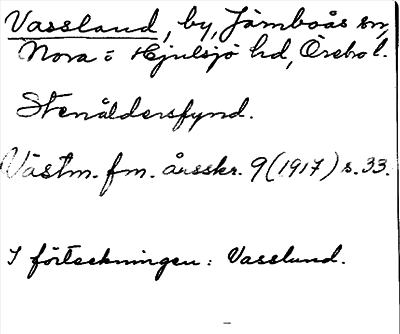 Vassland, by, Järnboås sn,
Nora o Hjulsjö hd, Örebro l.
Stenåldersfynd.
Västm. fm. årsskr. 9 (1917) s. 33.
I förteckningen: Vasslund.